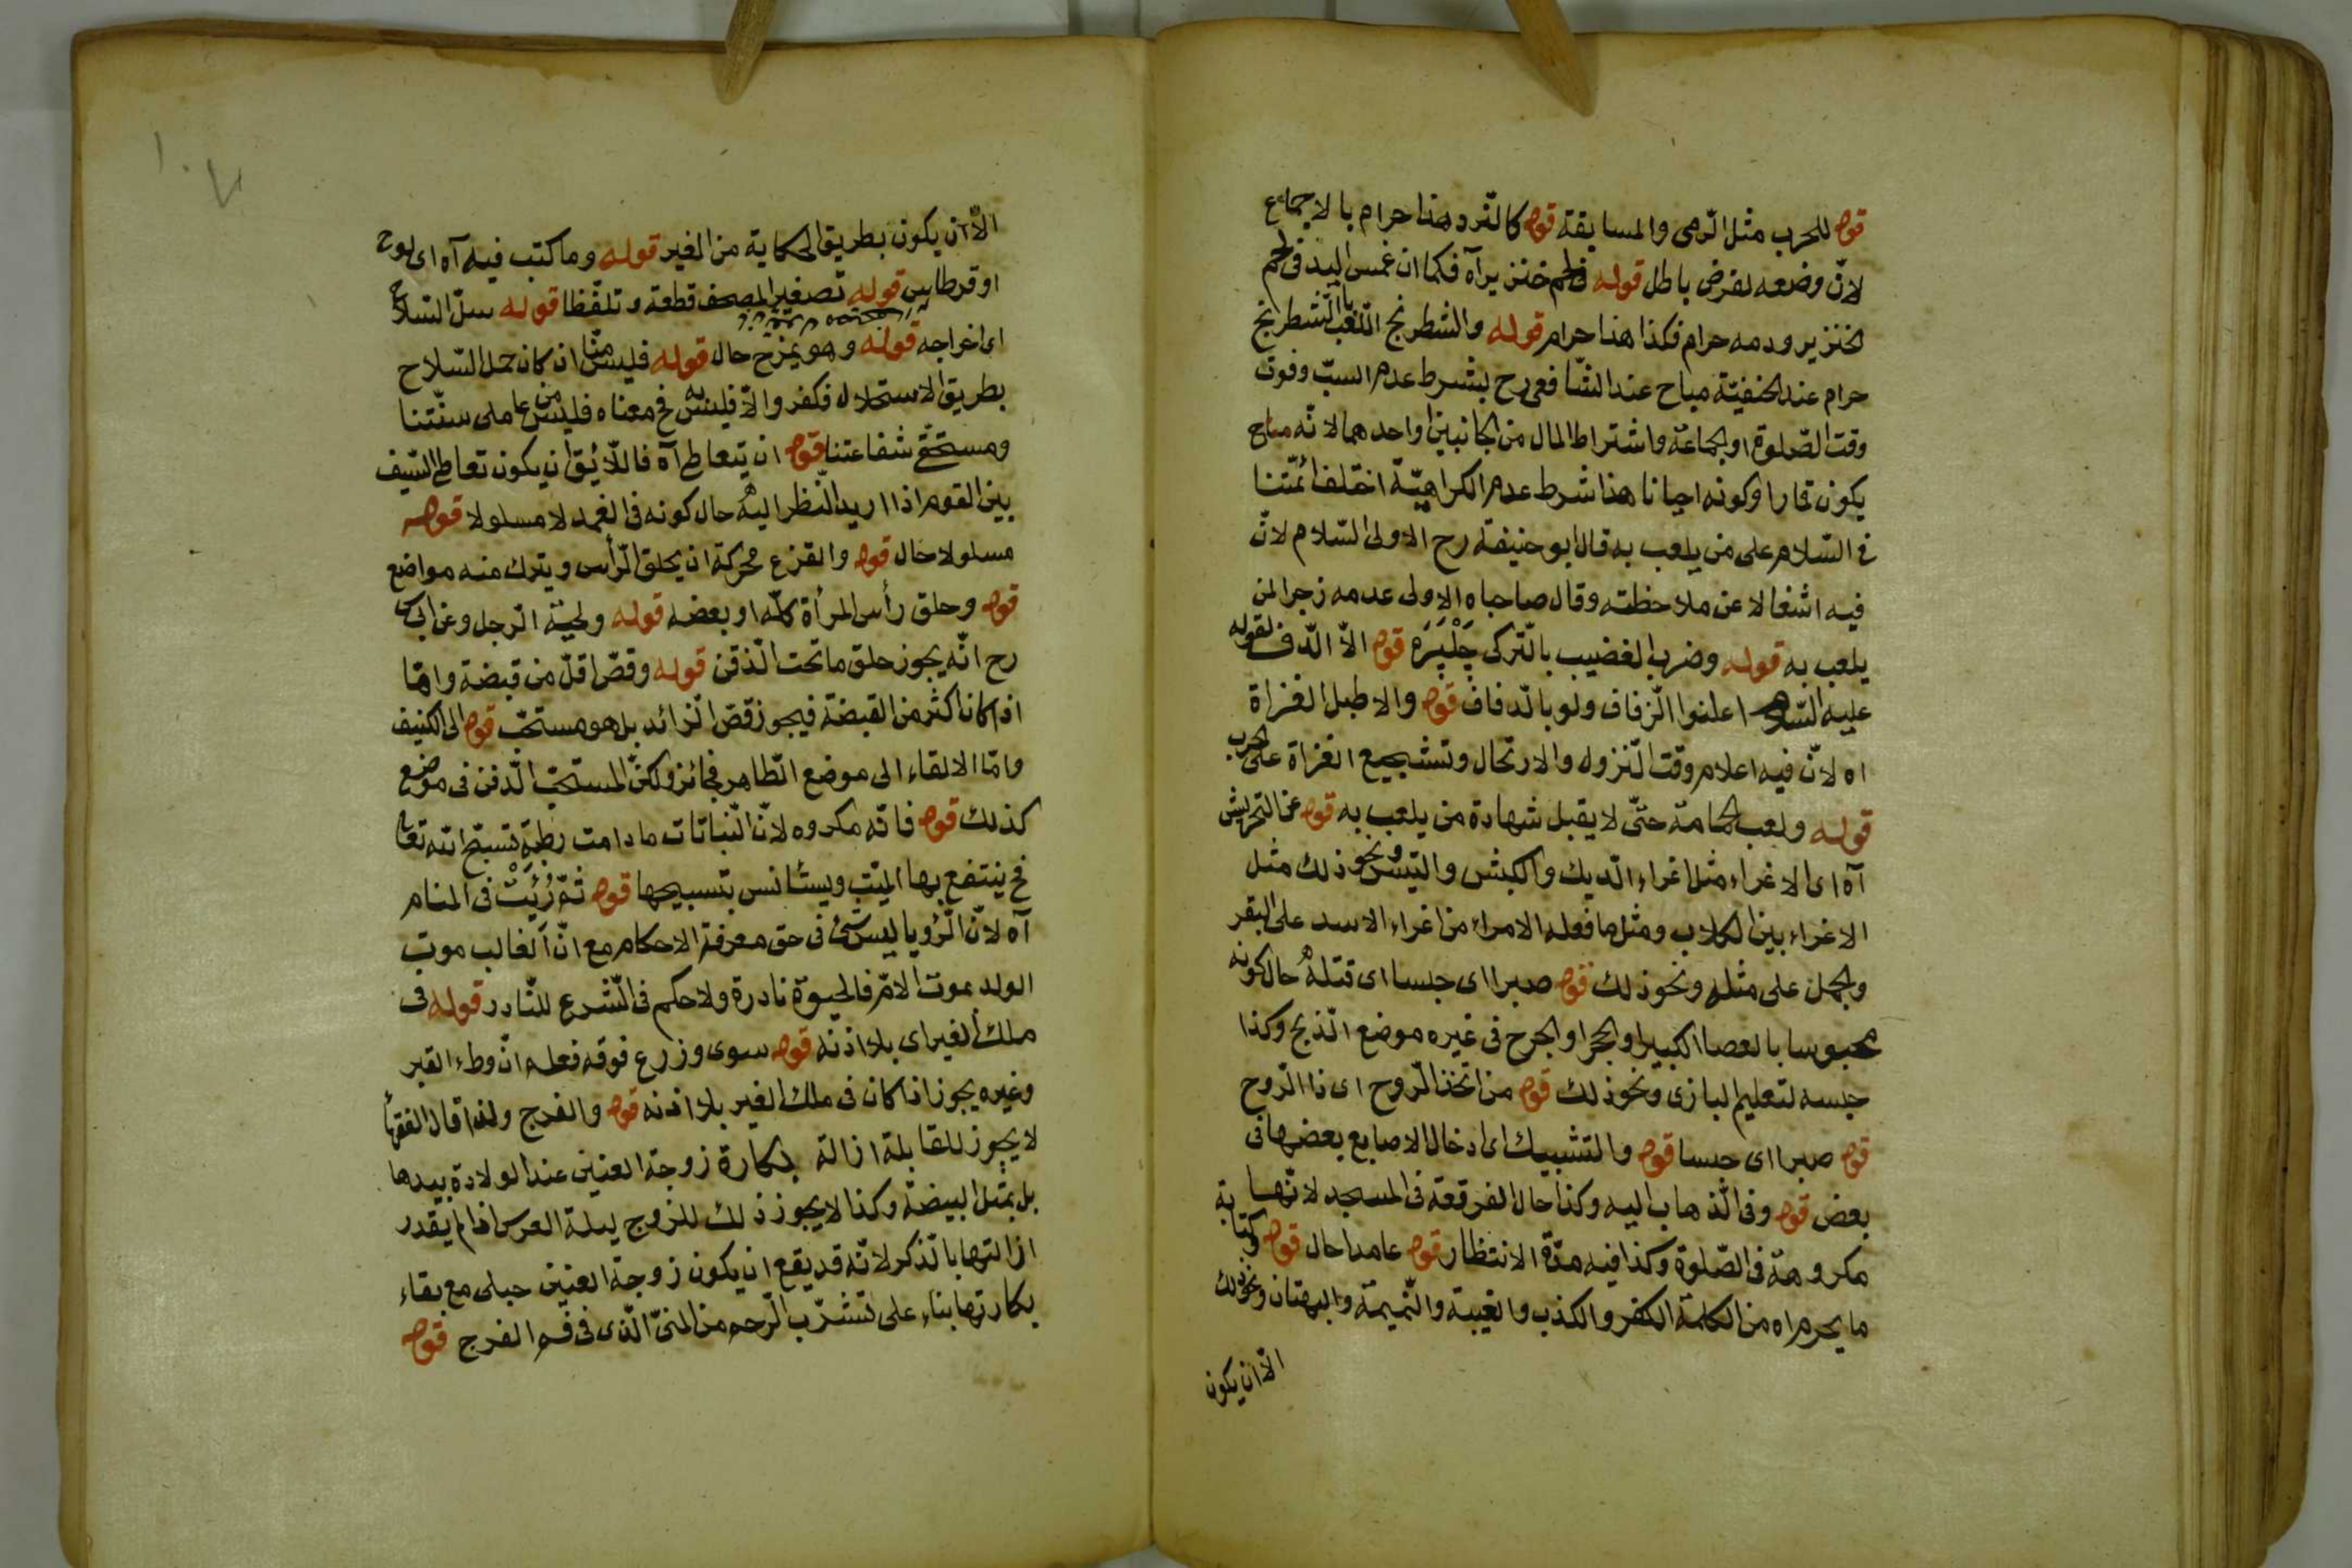 قوله للحرب مثل الرمى والمسابقة قوله كالنرد هذا حرام بالاجماع
لانّ وضعه لغرض باطل قوله فى لحم خنزير آه فكما ان غمس اليد فى لحم
الخنزير ودمه حرام فكذا هذا حرام قوله والشطرنج اللّعب بالشطرنج
حرام عند الحنفيّة مباح عند الشافعى رح بشرط عدم السبّ وفوت
وقت الصّلوة او الجماعة واشتراط المال من الجانبين او احدهما لانّه مباح
يكون قمارا وكونه احيانا هذا شرط عدم الكراهيّة اختلف ائمّتنا
فى السّلام على من يلعب به قال ابو حنيفة رح الاولى السّلام لانّ
فيه اشغالا عن ملاحظته وقال صاحباه الاولى عدمه زجرا لمن
يلعب به قوله وضرب القضيب بالتّركى چَلْپَرَه قوله الاّ الدّف لقوله
عليه السّلام اعلنوا الزّفاف ولو بالدّفاف قوله والا طبل الغزاة
اه لانّ فيه اعلام وقت النّزول والارتحال وتشجيع الغزاة على الحرب
قوله ولعب الحمامة حتّى لا يقبل شهادة من يلعب به قوله عن التحريش
آه اى الاغراء مثل اغراء الدّيك والكبش والتّيس ونحو ذلك مثل
الاغراء بين الكلاب ومثل ما فعله الامراء من اغراء الاسد على البقر
والجمل على مثله ونحو ذلك قوله صبرا اى حبسا اى قتله حال كونه
محبوسا بالعصا الكبير او الحجر او الجرح فى غيره موضع الذّبح وكذا
حبسه لتعليم البازى ونحو ذلك قوله من اتّخذ الرّوح اى ذا الرّوح
قوله صبرا اى حبسا قوله والتشبيك اى ادخال الاصابع بعضها فى
بعض قوله وفى الذّهاب اليه وكذا حال الفرقعة فى المسجد لانّها
مكروهة فى الصّلوة وكذا فيه مدّة الانتظار قوله عامدا حال قوله وكتابة
ما يحرم اه من الكلمة الكفر والكذب والغيبة والنّميمة والبهتان ونحو ذلك
الاّ ان يكون
الاّ ان يكون بطريق الحكاية من الغير قوله وما كتب فيه آه اى لوح
او قرطاس قوله تصغير المصحف قطعة وتلفّظا قوله سلّ السّلاح
اى اخراجه قوله وهو يمزح حال قوله فليس منّا ان كان حمل السّلاح
بطريق الاستحلال فكفر والاّ فليس به فح معناه فليس من عاملى سنّتنا
ومستحقّى شفاعتنا قوله ان يتعاطى آه فاللاّئق ان يكون تعاطى السّيف
بين القوم اذا اريد النّظر اليه حال كونه فى الغمد لا مسلولا قوله
مسلولا حال قوله والقزع محركة ان يحلق الرّأس ويترك منه مواضع
قوله وحلق رأس المرأة كلّه او بعضه قوله ولحية الرّجل وعن ابى س
رح انّه يجوز حلق ما تحت الذّقن قوله وقصّ اقلّ من قبضة وامّا
اذا كان اكثر من القبضة فيجوز قصّ الزّائد بل هو مستحبّ قوله الى الكنيف
وامّا الالقاء الى موضع الطّاهر فجائز ولكنّ المستحبّ الدّفن فى موضع
كذلك قوله فانّه مكروه لانّ النّباتات ما دامت رطبة تسبّح الله تعالى
فح ينتفع بها الميّت ويستأنس بتسبيحها قوله ثمّ رُئِيَتْ فى المنام
آه لانّ الرّؤيا ليس بشئ فى حق معرفة الاحكام مع انّ الغالب موت
الولد بموت الامّ فالحيوة نادرة ولا حكم فى الشّرع للنّادر قوله فى
ملك الغير اى بلا اذنه قوله سوى وزرع فوقه فعلم انّ وطء القبر
وغيره يجوز اذا كان فى ملك الغير بلا اذنه قوله والفرج ولذا قال الفقهاء
لا يجوز للقابلة ازالة بكارة زوجة العنين عند الولادة بيدها
بل بمثل البيضة وكذا لا يجوز ذلك للزوج ليلة العرس اذا لم يقدر
ازالتها بالذّكر لانّه قد يقع ان يكون زوجة العنين حبلى مع بقاء
بكارتها بناء على تشرّب الرّحم من المنىّ الّذى فى فم الفرج قوله